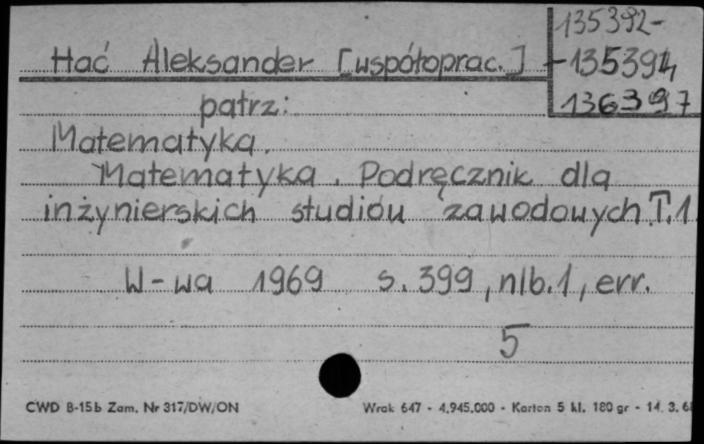 135392-
Hać Aleksander [współoprac.] -135394
136397
patrz:
Matematyka.
Matematyka. Podręcznik dla
inżynierskich studiów zawodowych. T.1
W-wa 1969 s. 399, nlb.1, err.
5
CWD B-15b Zam. Nr 317/DW/ON Wrak 647 - 4.945.000 - Karton 5 kl. 180 gr - 14. 3. 6